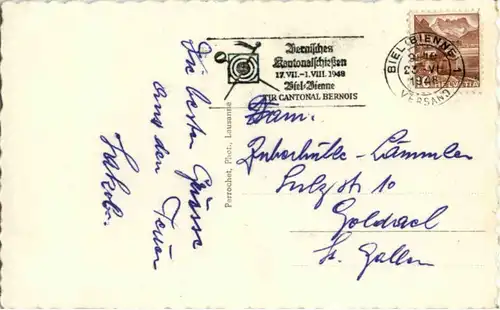 Die besten Grüsse
aus den
Jakob.
Perrochet, Phot., Lausanne
Bernisches
Kantonalschießen
17. VII.–1. VIII. 1948
Biel-Bienne
TIR CANTONAL BERNOIS
BIEL (BIENNE) 1
1948
VERSAND
HELVETIA
Fam.
Sulzstr 10
Goldach
St. Gallen